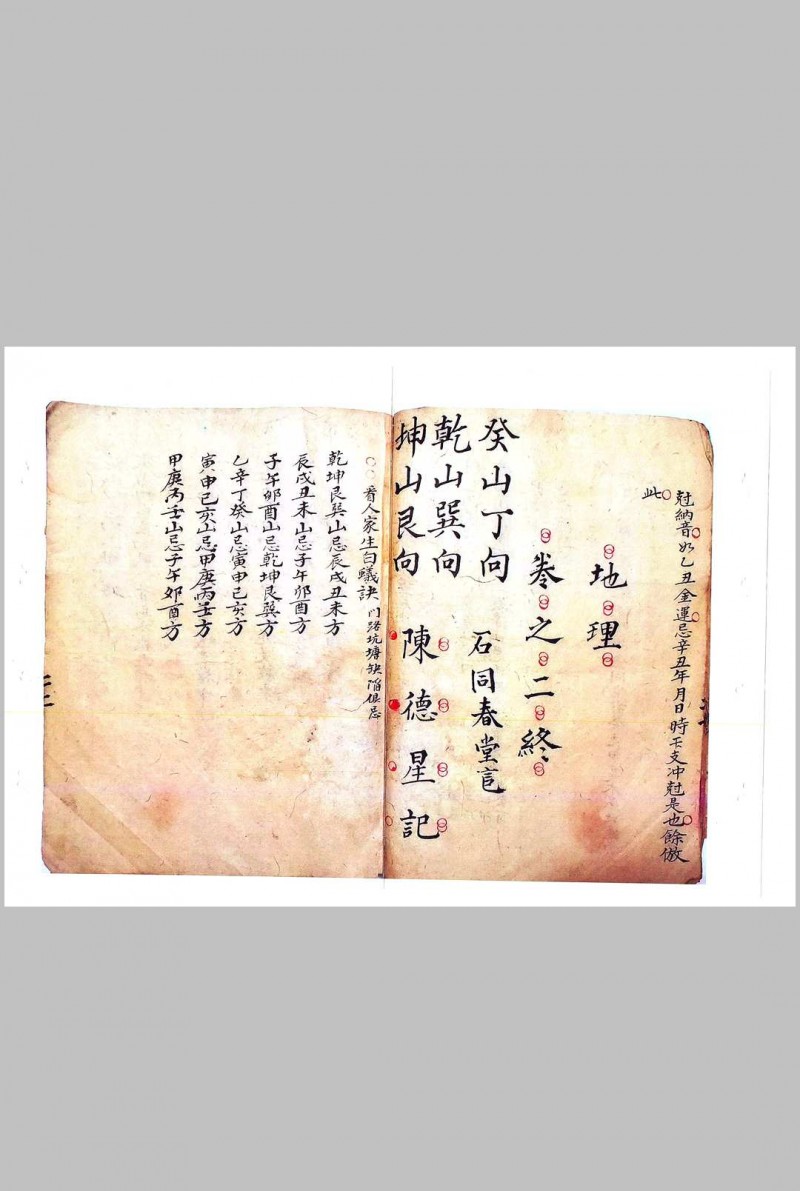 尅納音如乙丑金運忌辛丑年月日時干支冲尅是也餘倣
此
地理
卷之二終
癸山丁向 石同春堂
乾山巽向
坤山艮向 陳德星記
看人家生白蟻訣 门路坑塘缺陷俱忌
乾坤艮巽山忌辰戌丑未方
辰戌丑未山忌子午卯酉方
子午卯酉山忌乾坤艮巽方
乙辛丁癸山忌寅申巳亥方
寅申巳亥山忌甲庚丙壬方
甲庚丙壬山忌子午卯酉方